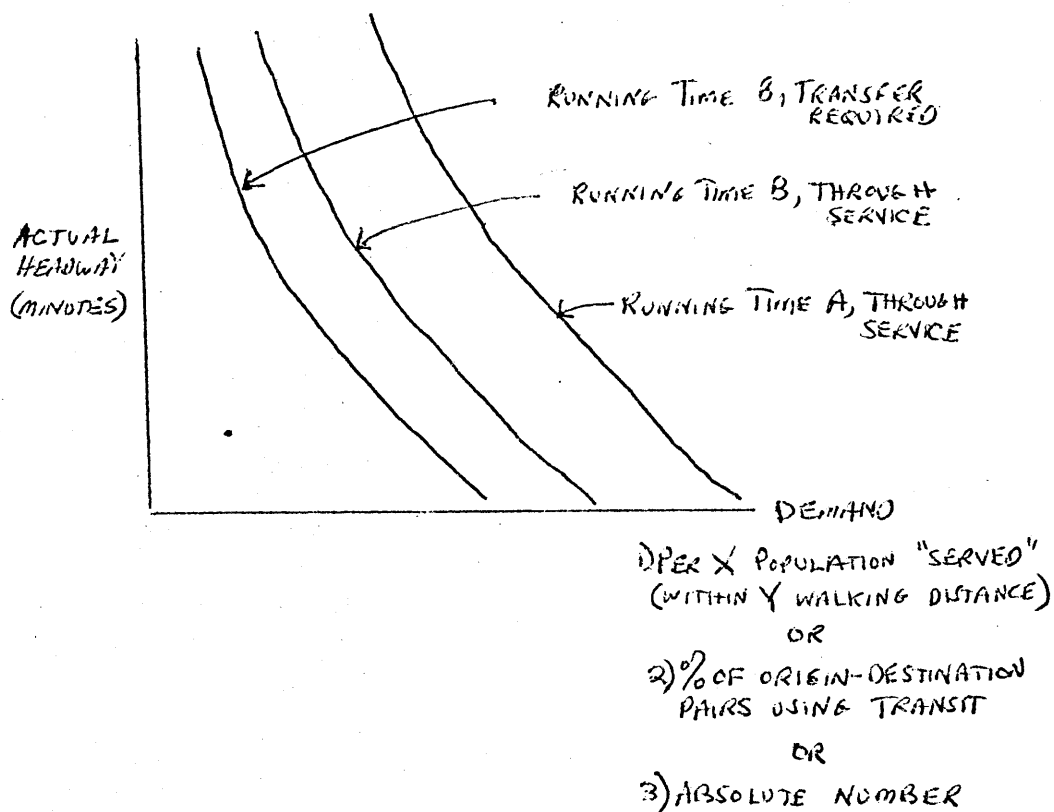 RUNNING TIME B, TRANSFER
REQUIRED
RUNNING TIME B, THROUGH
SERVICE
ACTUAL
HEADWAY
(MINUTES)
RUNNING TIME A, THROUGH
SERVICE
DEMAND
1) PER X POPULATION "SERVED"
(WITHIN Y WALKING DISTANCE)
OR
2) % OF ORIGIN-DESTINATION
PAIRS USING TRANSIT
OR
3) ABSOLUTE NUMBER